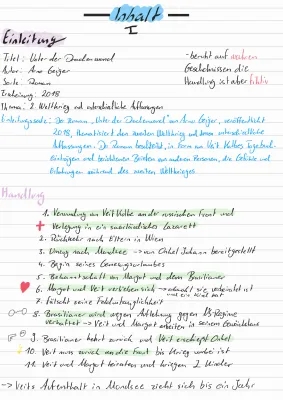 Inhalt
I
Einleitung
Titel: Unter der Drachenwand
Autor: Arno Geiger
Sorte: Roman
Erscheinung: 2018
Thema: 2. Weltkrieg und unterschiedliche Auffassungen
- beruht auf wahren
Geschehnissen die
Handlung ist aber fiktiv
Einleitungssatz: Der Roman „Unter der Drachenwand" von Arno Geiger, veröffentlicht
2018, thematisiert den zweiten Weltkrieg und deren unterschiedliche
Auffassungen. Der Roman beschreibt, in Form von Veit Kolbes Tagebuch-
einträgen und Briefen von anderen Personen, die Gefühle und
Erfahrungen während des zweiten Weltkrieges.
Handlung
1. Verwundung von Veit Kolbe an der russischen Front und
Verlegung in ein saarländisches Lazarett
2. Rückkehr nach Eltern in Wien
3. Umzug nach Mondsee -> von Onkel Johann bereitgestellt
4. Beginn seines Genesungsurlaubes
5. Bekanntschaft mit Margot und dem Brasilianer
6. Margot und Veit verlieben sich -> obwohl sie verheiratet ist
und ein Kind hat
7. Fälscht seine Feldtauglichkeit
8. Brasilianer wird wegen Ablehnung gegen NS-Regime
verhaftet -> Veit und Margot arbeiten in seinem Gewächshaus
9. Brasilianer kehrt zurück und Veit erschießt Onkel
10. Veit muss zurück an die Front bis Krieg vorbei ist
11. Veit und Margot heiraten und kriegen 2 Kinder
-> Veits Aufenthalt in Mondsee zieht sich bis ein Jahr